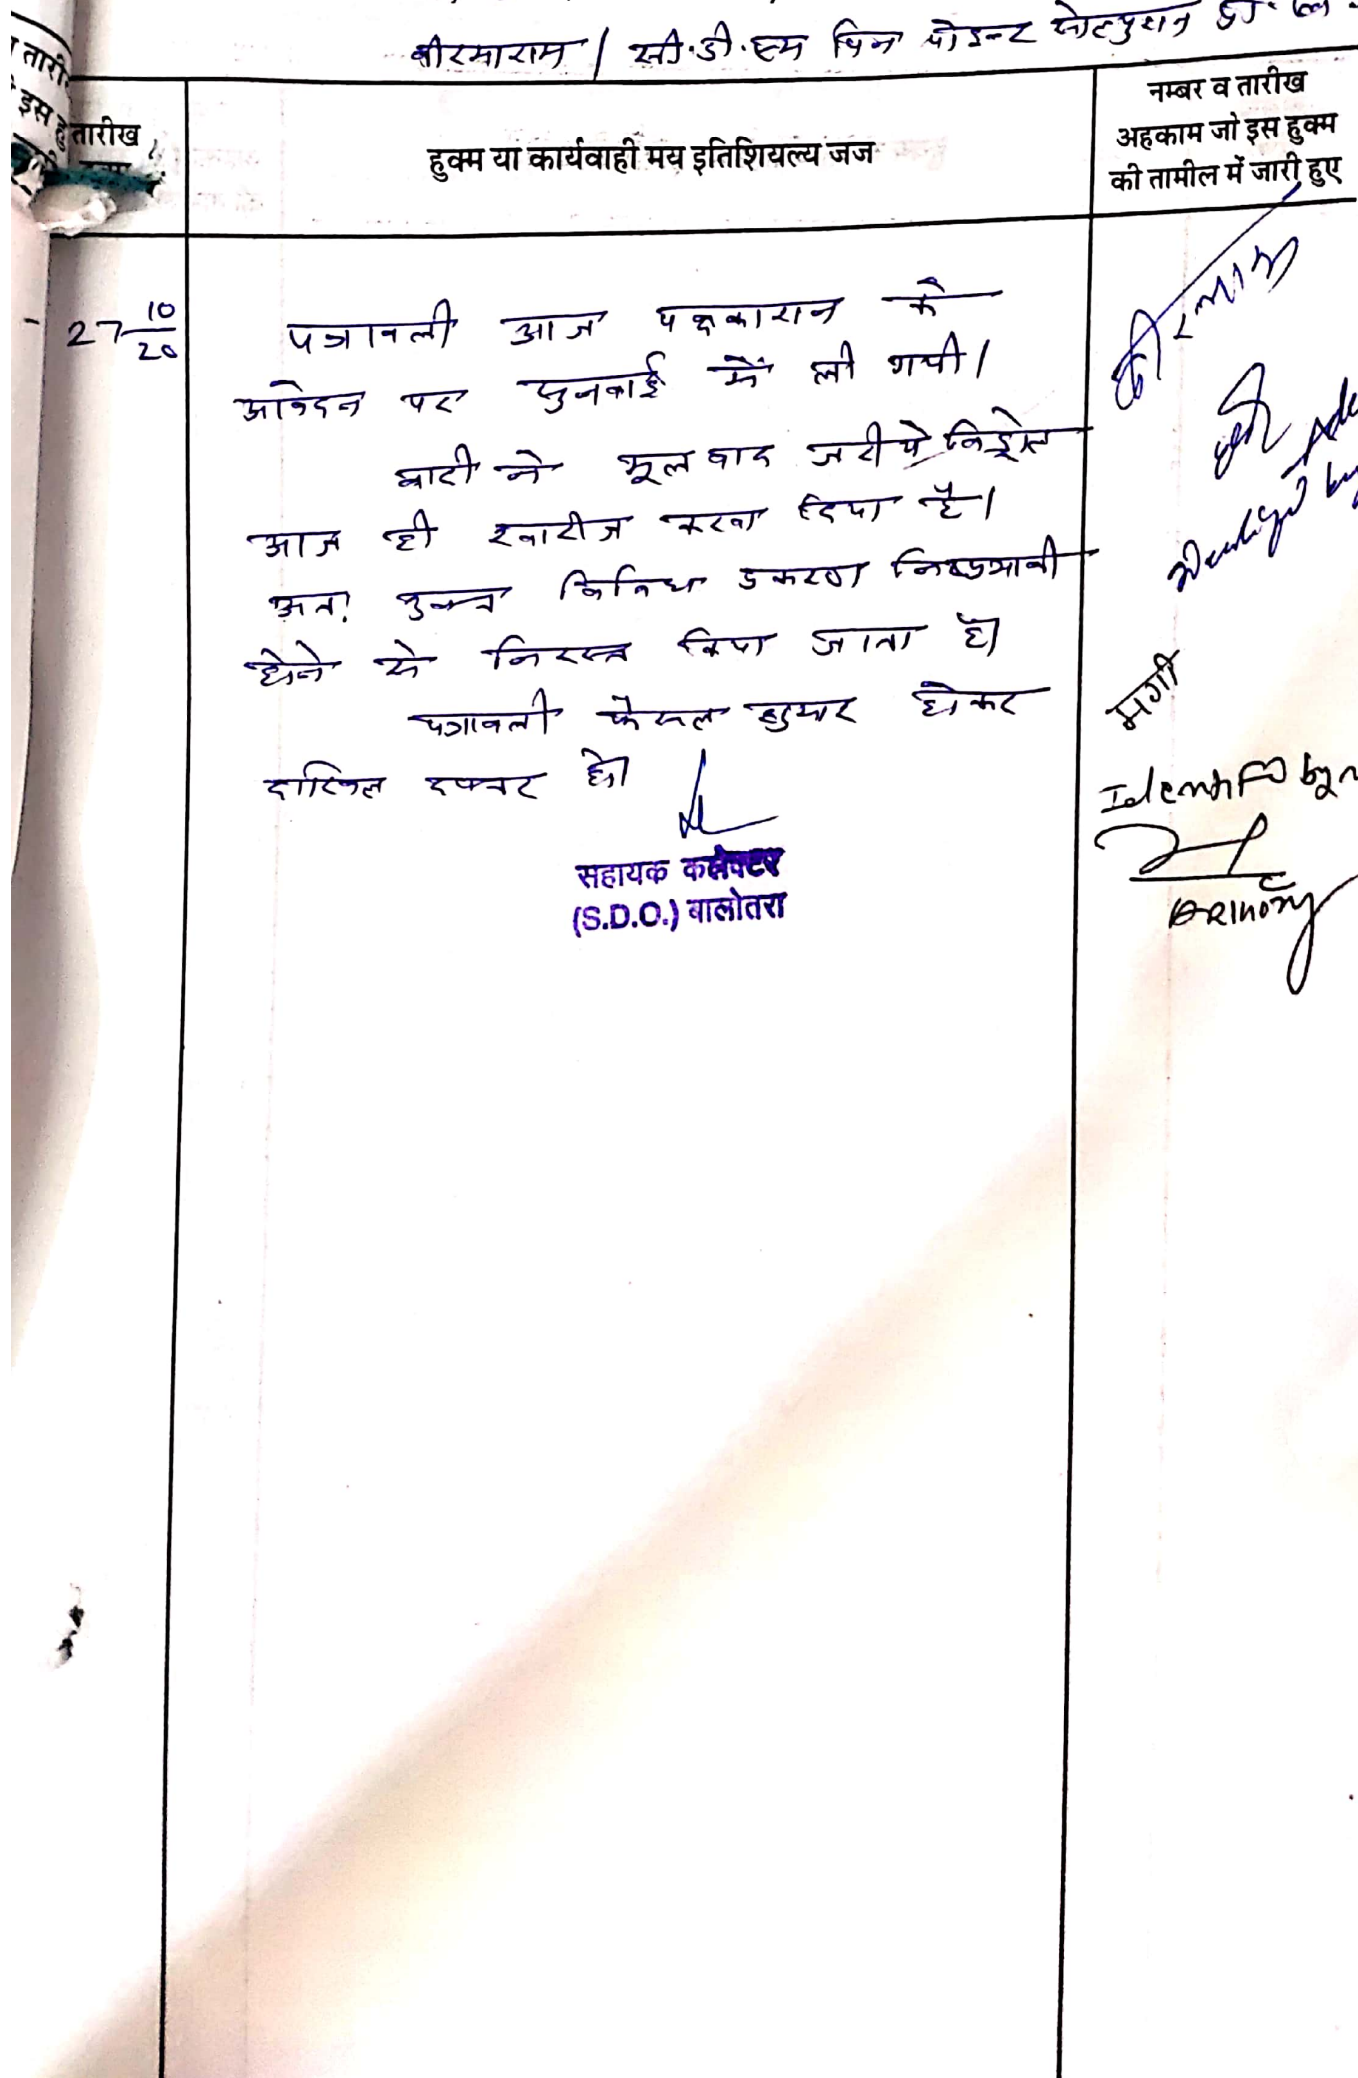 वीरमाराम / सी.डी.एम पिन पोइन्ट सोल्युशन प्रा. ली.
तारी
इस हु
तारीख
हुक्म या कार्यवाही मय इतिशियल्य जज
नम्बर व तारीख
अहकाम जो इस हुक्म
की तामील में जारी हुए
27 10/20
पत्रावली आज पक्षकारान के
आवेदन पर सुनवाई में ली गयी।
वादी ने मूल वाद जरीये विड्रोल
आज ही खारीज करवा दिया है।
अतः विविध प्रकरण निष्प्रभावी
होने से निरस्त किया जाता है।
पत्रावली फैसल शुमार होकर
दाखिल दफ्तर हो।
सहायक कलेक्टर
(S.D.O.) बालोतरा
वीरमाराम
मगी
Identified by